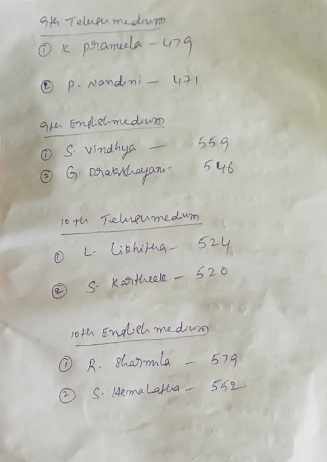 9th Telugu medium
① K. prameela - 479
② P. Nandini - 471
9th English medium
① S. Vindhya - 559
② G. Drakshayani 546
10th Telugu medum
① L. Likhitha - 524
② S. Kartheek - 520
10th English medium
① R. Sharmila - 579
② S. Hemalatha - 552